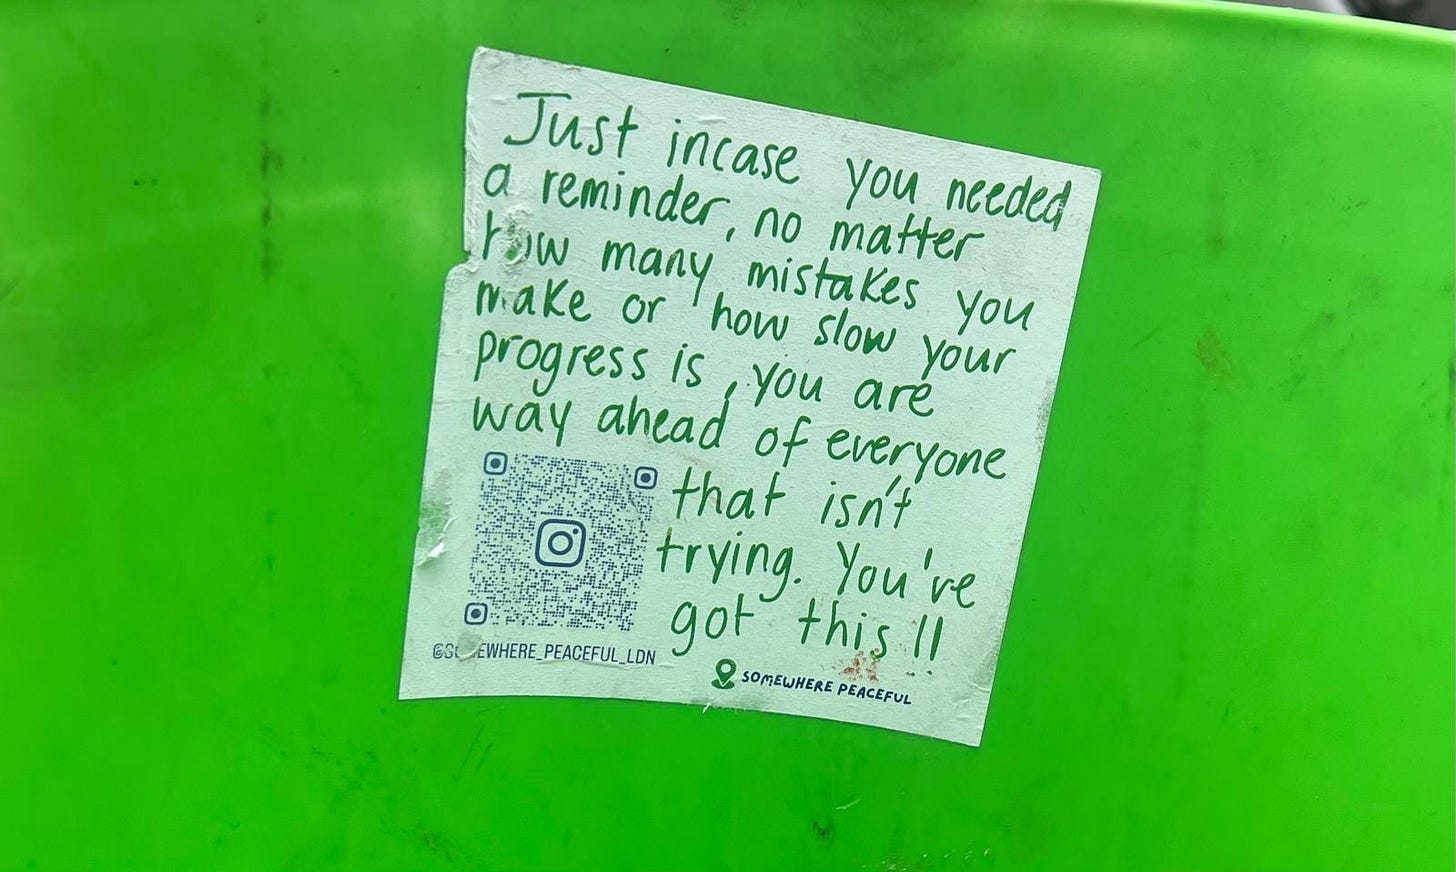 Just incase you needed
a reminder, no matter
how many mistakes you
make or how slow your
progress is, you are
way ahead of everyone
that isn't
trying. You've
got this!!
@SOMEWHERE_PEACEFUL_LDN
SOMEWHERE PEACEFUL